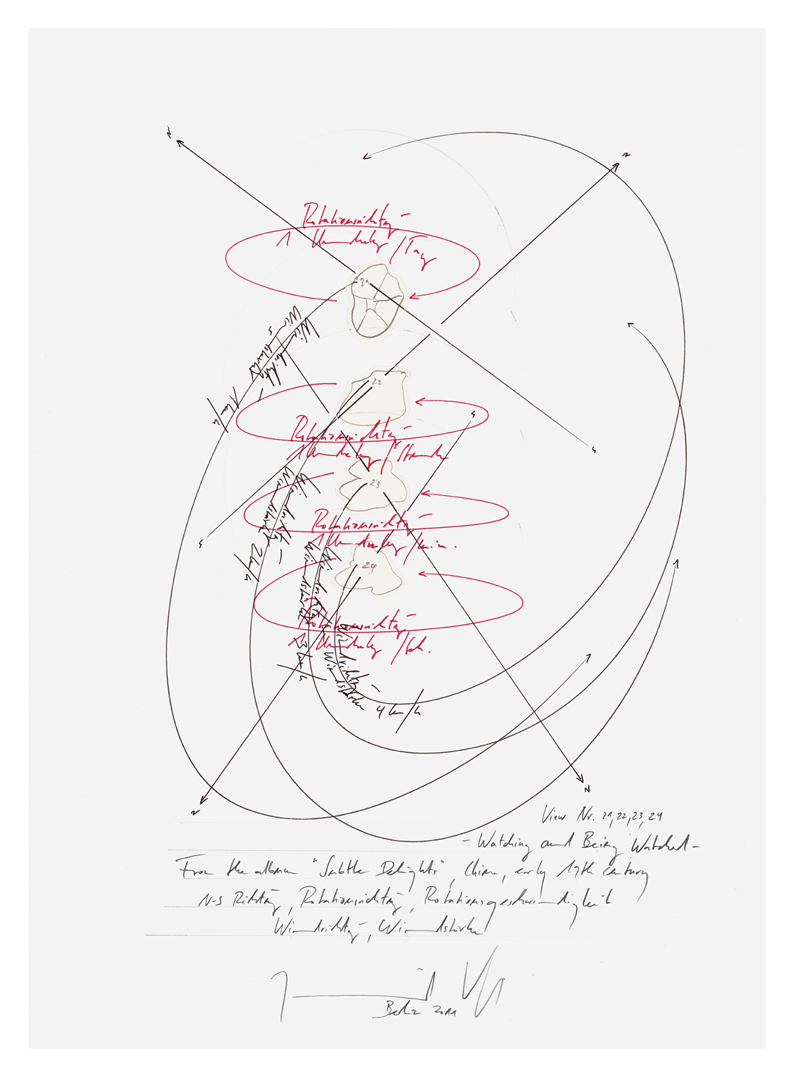 N
N
Rotationsrichtung
1 Umdrehung/Tag
21
Windrichtung
Windstärke
1 km/h
S
S
22
S
Rotationsrichtung
1 Umdrehung/Stunde
23
Windrichtung
Windstärke 2 km/h
S
Rotationsrichtung
1 Umdrehung/min.
24
Windrichtung
Windstärke
3 km/h
Rotationsrichtung
1 Umdrehung/sek.
Windrichtung
Windstärke
4 km/h
N
N
View Nr. 21, 22, 23, 24
- Watching and Being Watched -
From the album "Subtle Delights", China, early 17th century
N-S Richtung, Rotationsrichtung, Rotationsgeschwindigkeit
Windrichtung, Windstärke
2011